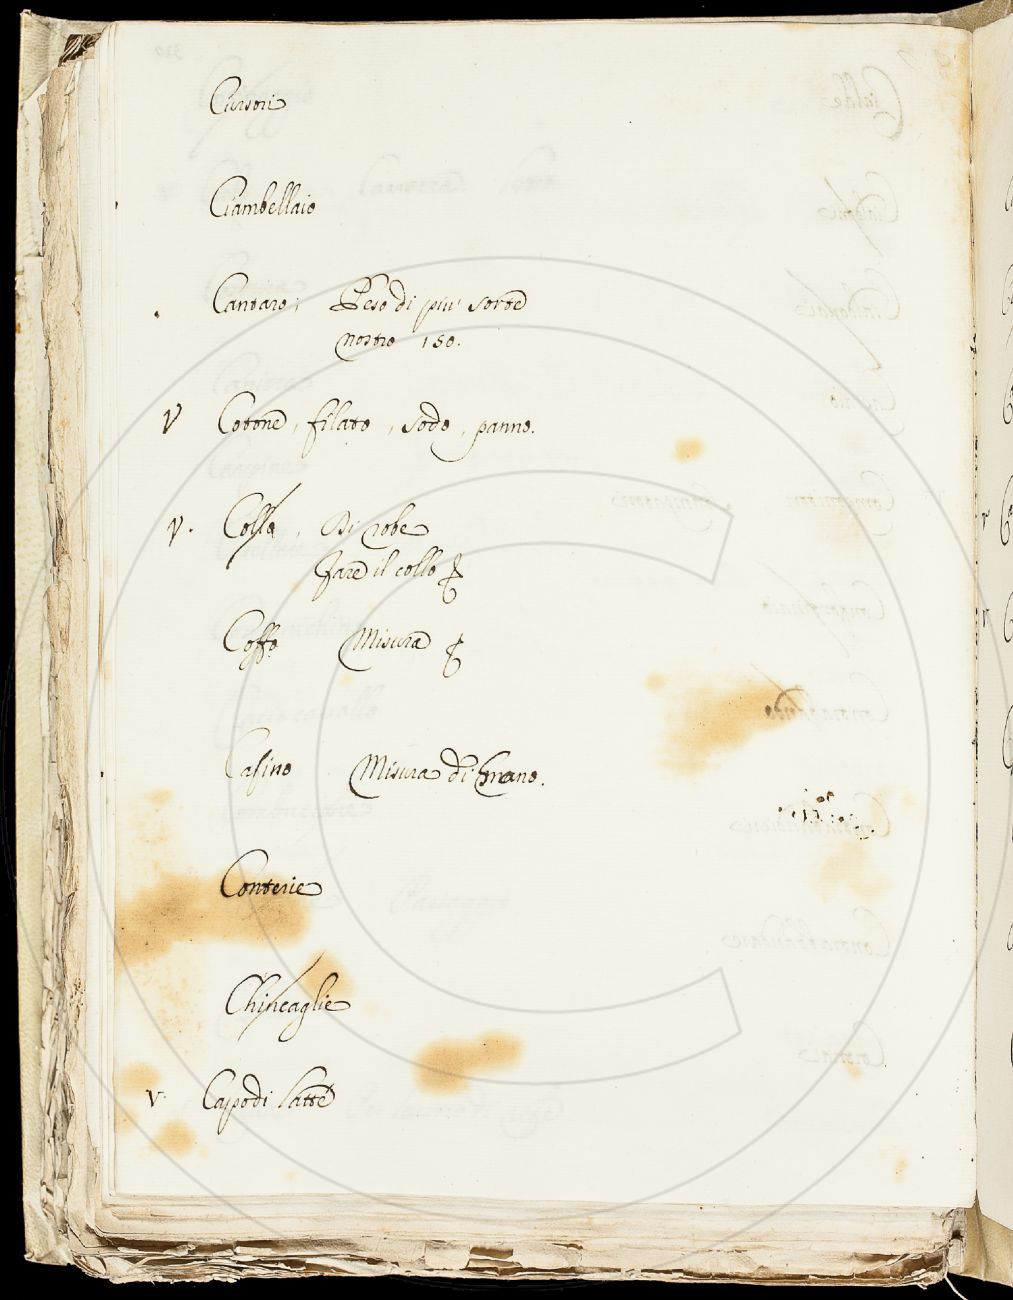 Cursori
Ciambellaio
Cantaro; Peso di piu sorte
nostro 150.
V Cotone, filato, sodo, panno.
V. Colla, Di robe
Fare il collo
Coffo Misura
Cafino Misura di Grano.
Conterie
Chincaglie
V. Capo di latte